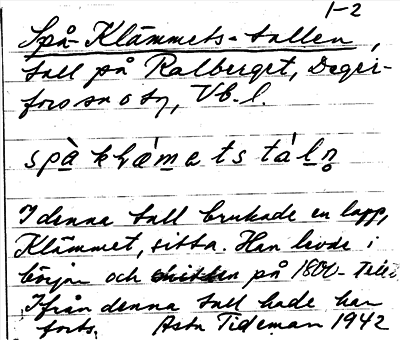 1-2
Spå-Klämmets-tallen,
tall på Ralberget, Deger-
fors sn o by, Vb. l.
spà kḷæ´mets tàlṇ
I denna tall brukade en lapp,
Klämmet, sitta. Han levde i
början och på 1800-talet
Ifrån denna tall hade han
forts. Astr Tideman 1942